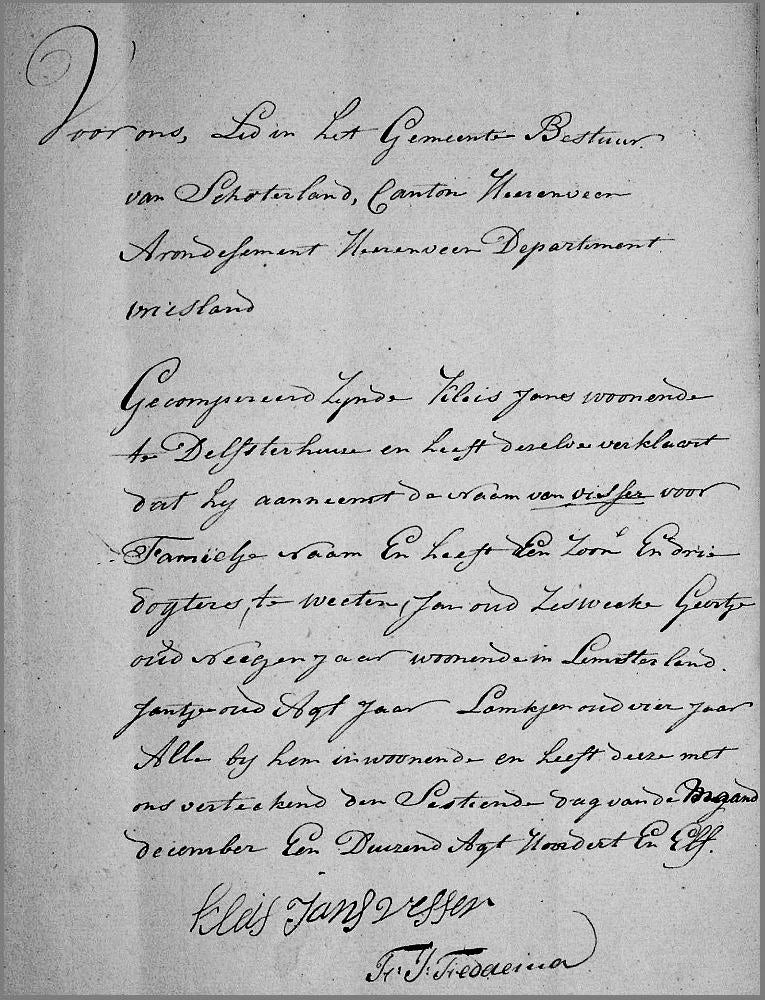 Voor ons, Lid in het Gemeente Bestuur
van Schoterland, Canton Heerenveen
Arondesement Heerenveen Departement
vriesland
Gecompareerd zynde Kleis Jans woonende
te Delfsterhuise en heeft deselve verklaart
dat hy aanneemt de Naam van visser voor
Familje Naam En heeft Een Zoon En drie
dogters, te weeten, Jan oud Zesweeke Geertje
oud Neegen jaar woonende in Lemsterland.
Jantje oud Agt Jaar Lamkjen oud vier Jaar
Alle by hem inwoonende en heeft deeze met
ons verteekend den Sestiende dag van de Maand
december Een Duizend Agt Hondert En Elf.
Kleis Jans vesser